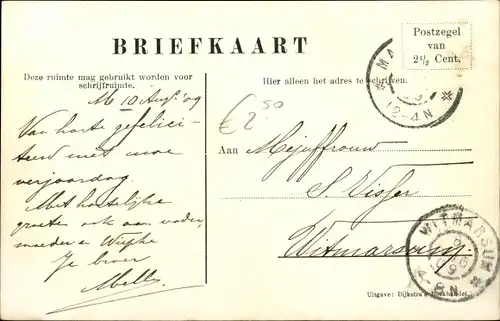 BRIEFKAART
Postzegel
van
2½ Cent.
Deze ruimte mag gebruikt worden voor
schrijfruimte.
Hier alleen het adres te schrijven.
M 10 Aug. '09
Van harte gefelici-
teerd met uwe
verjaardag.
Met hartelijke
groete ook aan vader,
moeder e Wiepke
Je broer
Melle
€ 2.50
Aan Mejuffrouw
S. Visser
Witmarsum.
12-4N
WITMARSUM
4-8N
Uitgave: Dijkstra's Boekhandel.